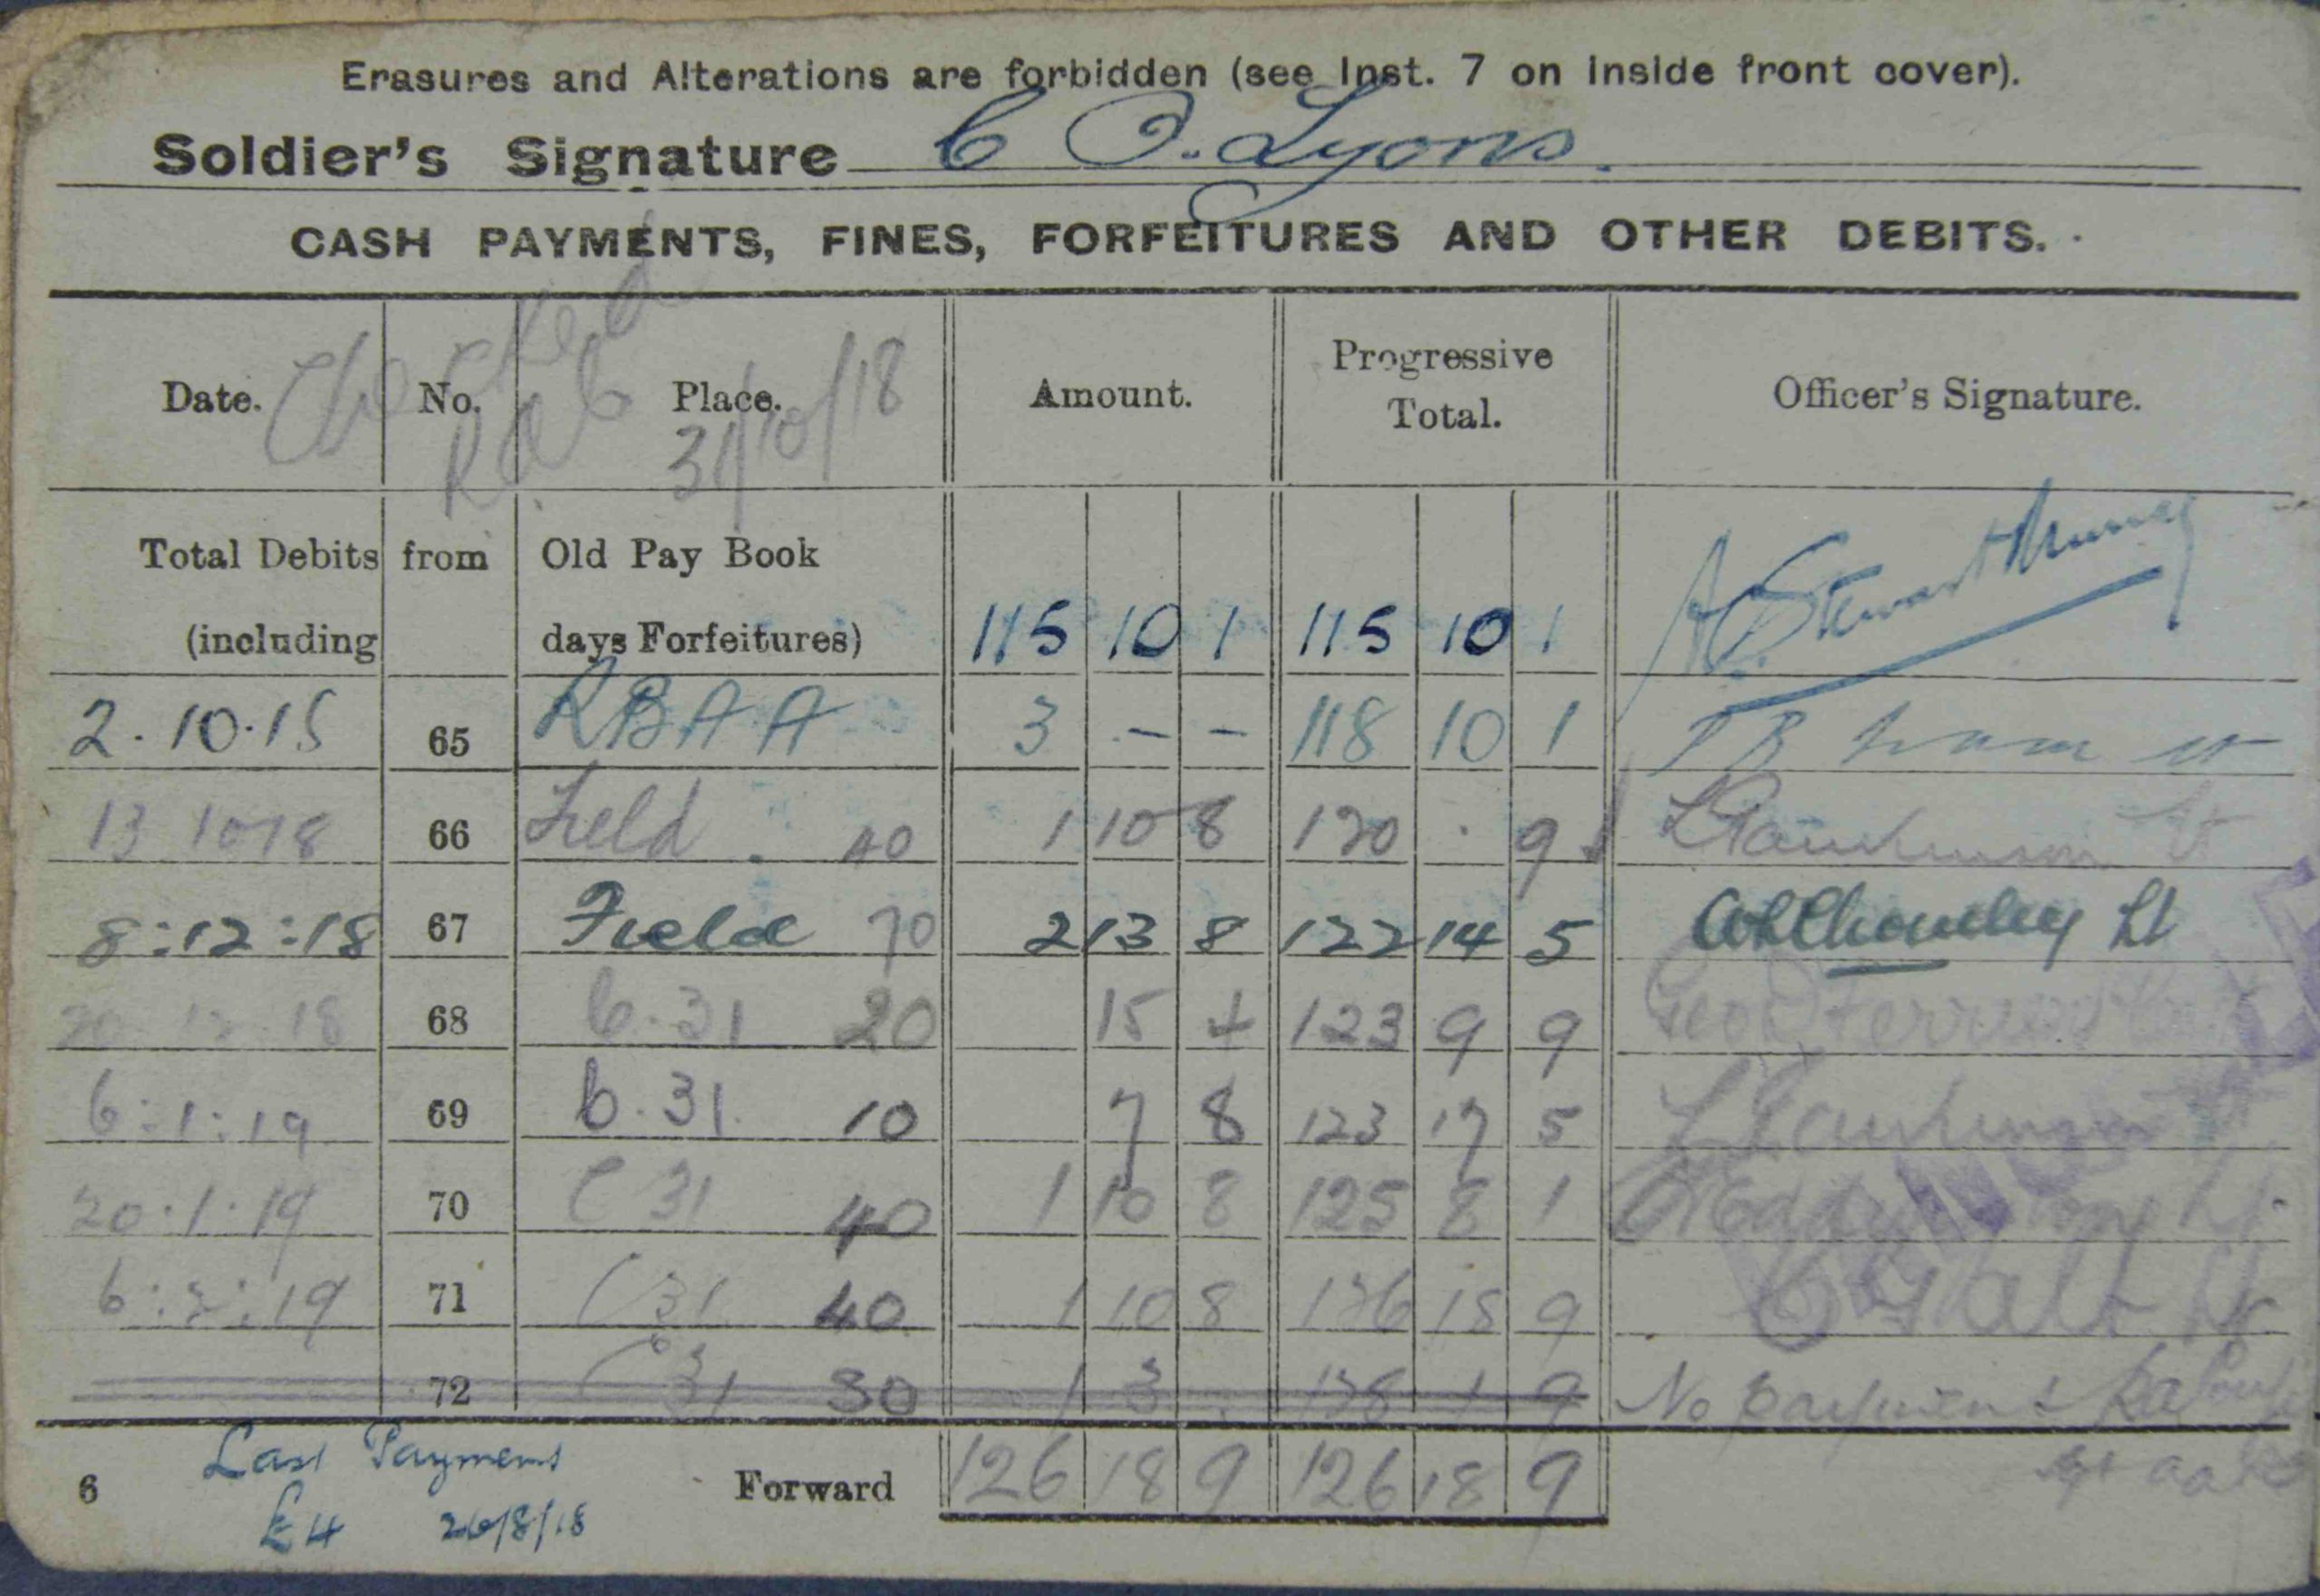 Erasures and Alterations are forbidden (see Inst. 7 on inside front cover).
Soldier's Signature C O. Lyons.
CASH PAYMENTS, FINES, FORFEITURES AND OTHER DEBITS.
Checked
31/10/18
Date. No. Place. Amount. Progressive Total. Officer's Signature.
Total Debits from Old Pay Book
(including days Forfeitures) 115 10 1 115 10 1 A. Stewart Murray
2.10.18 65 RBAA 3 - - 118 10 1
13 10 18 66 Field. 40 1 10 8 120 . 9 Lt
8:12:18 67 Field 70 2 13 8 122 14 5 Lt
20 12 18 68 C.31 20 15 4 123 9 9
6:1:19 69 C.31. 10 7 8 123 17 5
20.1.19 70 C 31 40 1 10 8 125 8 1 Lt.
6:2:19 71 C31 40 1 10 8 126 18 9
72 C31 30 1 3 . 128 1 9 No payment
6 Last Payment Forward 126 18 9 126 18 9
£4 26/8/18